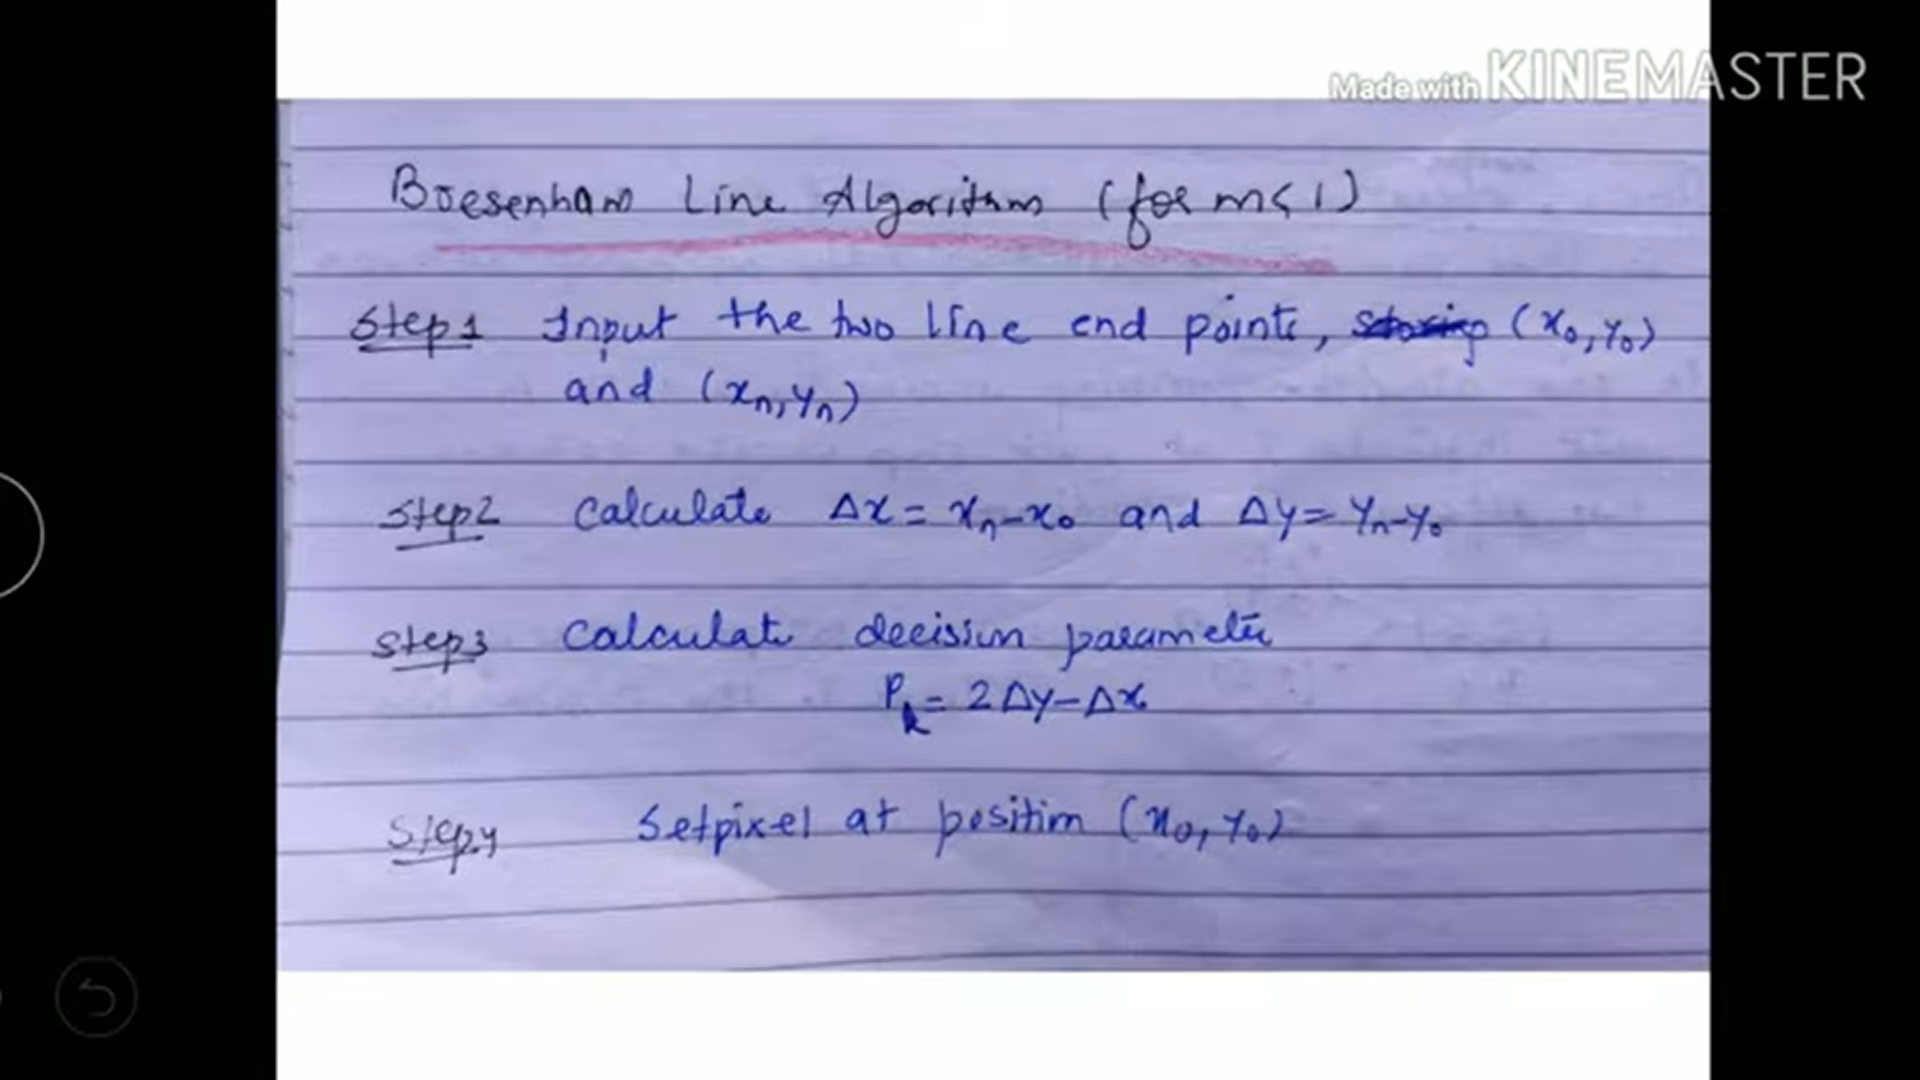 Made with KINEMASTER
Bresenham Line Algorithm (for m<1)
Step1 Input the two line end points, (x₀,y₀)
and (xₙ,yₙ)
Step2 Calculate Δx = xₙ-x₀ and Δy = yₙ-y₀
Step3 Calculate decision parameter
Pₖ = 2Δy-Δx
Step4 Setpixel at position (x₀,y₀)